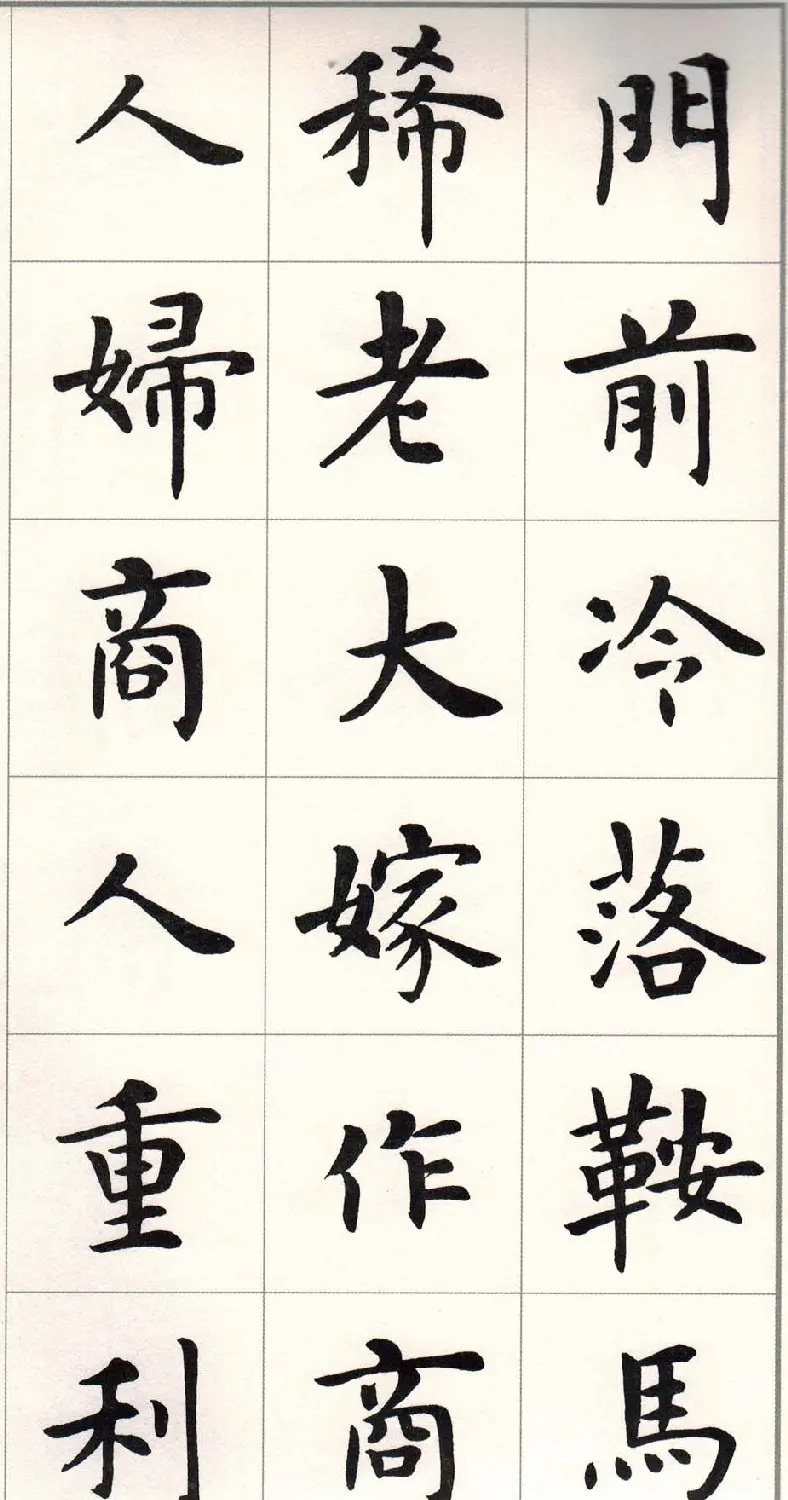 門前冷落鞍馬
稀老大嫁作商
人婦商人重利